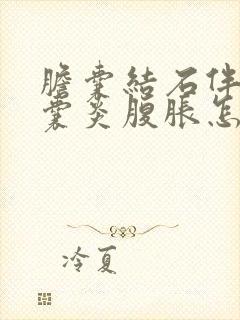 膽囊結石伴
囊炎腹脹怎
冷夏